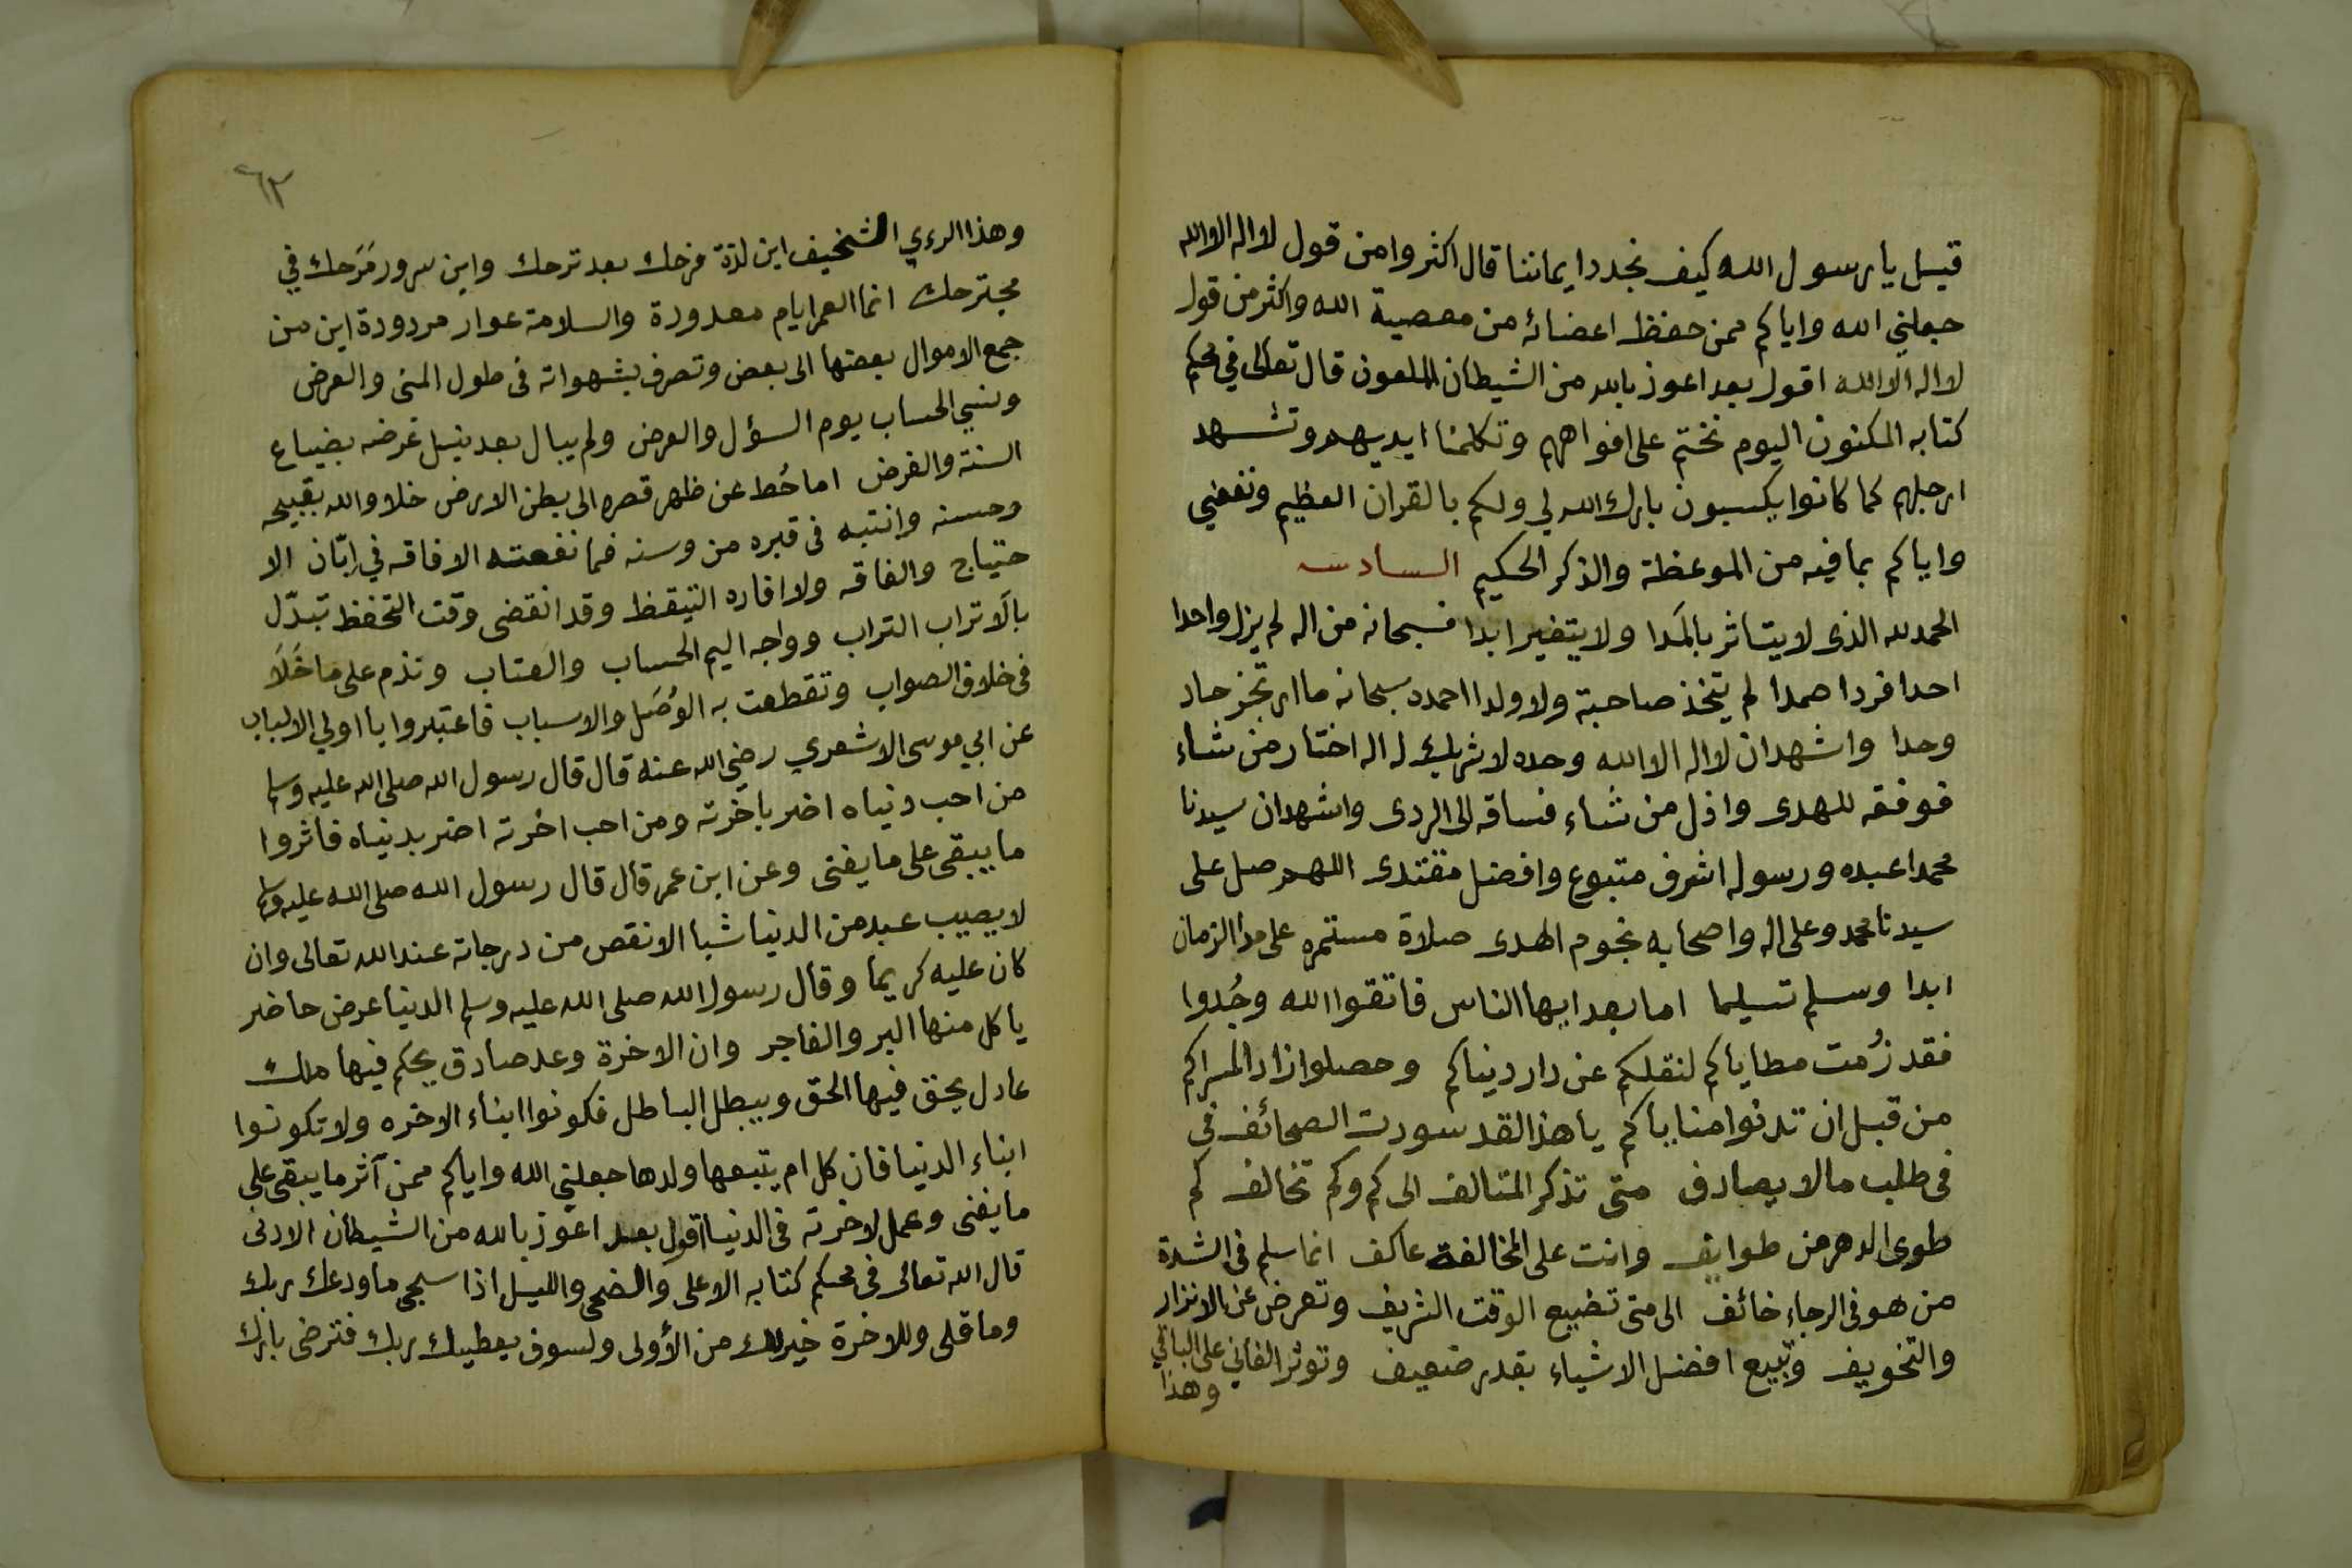 قيل يا رسول الله كيف نجدد ايماننا قال اكثروا من قول لا اله الا الله
جعلني الله واياكم ممن حفظ اعضائه من معصية الله واكثر من قول
لا اله الا الله اقول بعد اعوذ بالله من الشيطان الملعون قال تعالى في محكم
كتابه المكنون اليوم نختم على افواههم وتكلمنا ايديهم وتشهد
ارجلهم كما كانوا يكسبون بارك الله لي ولكم بالقران العظيم ونفعني
واياكم بما فيه من الموعظة والذكر الحكيم السادسه
الحمد لله الذى لا يتاثر بالمَدا ولا يتغير ابدا فسبحانه من اله لم يزل واحدا
احدا فردا صمدا لم يتخذ صاحبة ولا ولدا احمده سبحانه ما ارتجز حاد
وحدا واشهد ان لا اله الا الله وحده لا شريك له اله اختار من شاء
فوفقه للهدى واذل من شاء فساقه الى الردى واشهد ان سيدنا
محمدا عبده ورسوله اشرف متبوع وافضل مقتدى اللهم صل على
سيدنا محمد وعلى اله واصحابه نجوم الهدى صلاة مستمره على مدا الزمان
ابدا وسلم تسليما اما بعد ايها الناس فاتقوا الله وجُدوا
فقد زُمت مطاياكم لنقلكم عن دار دنياكم وحصلوا زاد المسراكم
من قبل ان تدنوا مناياكم يا هذا لقد سودت الصحائف فى
فى طلب مالا يصادف متى تذكر المتالف الى كم وكم تخالف كم
طوى الدهر من طوايف وانت على المخالفة عاكف انما سلم فى الشدة
من هو فى الرجاء خائف الى متى تضييع الوقت الشريف وتعرض عن الانزار
والتخويف وتبيع افضل الاشياء بقدر ضعيف وتوثر الفاني على الباقي
وهذا
٦٣
وهذا الردي الشخيف اين لذة فرحك بعد ترحك واين سرور مَرَحك في
مجترحك انما العمر ايام معدودة والسلامة عوار مردودة اين من
جمع الاموال بعضها الى بعض وتصرف بشهواته فى طول المنى والعرض
ونسي الحساب يوم السؤل والعرض ولم يبال بعد نيل غرضه بضياع
السنة والفرض اما حُط عن ظهر قصره الى بطن الارض خلا والله بقبيحه
وحسنه وانتبه فى قبره من وسنه فما نفعته الافاقه في اِبّان الا
حتياج والفاقه ولا افاده التيقظ وقد انقضى وقت التحفظ تبدّل
بالاتراب التراب وواجه اليم الحساب والعتاب وندم على ما خَلاَ
فى خلاف الصواب وتقطعت به الوُصَل والاسباب فاعتبروا يا اولي الالباب
عن ابي موسى الاشعري رضي الله عنه قال قال رسول الله صلى الله عليه وسلم
من احب دنياه اضر باخرته ومن احب اخرته اضر بدنياه فاثروا
ما يبقى على ما يفنى وعن ابن عمر قال قال رسول الله صلى الله عليه وسلم
لا يصيب عبد من الدنيا شيا الا نقص من درجاته عند الله تعالى وان
كان عليه كريما وقال رسول الله صلى الله عليه وسلم الدنيا عرض حاضر
ياكل منها البر والفاجر وان الاخرة وعد صادق يحكم فيها ملك
عادل يحق فيها الحق ويبطل الباطل فكونوا ابناء الاخره ولا تكونوا
ابناء الدنيا فان كل ام يتبعها ولدها جعلني الله واياكم ممن آثر ما يبقى على
ما يفنى وعمل لاخرته فى الدنيا اقول بعد اعوذ بالله من الشيطان الادنى
قال الله تعالى فى محكم كتابه الاعلى والضحى والليل اذا سجى ما ودعك ربك
وما قلى وللاخرة خير لك من الأولى ولسوف يعطيك ربك فترضى بارك